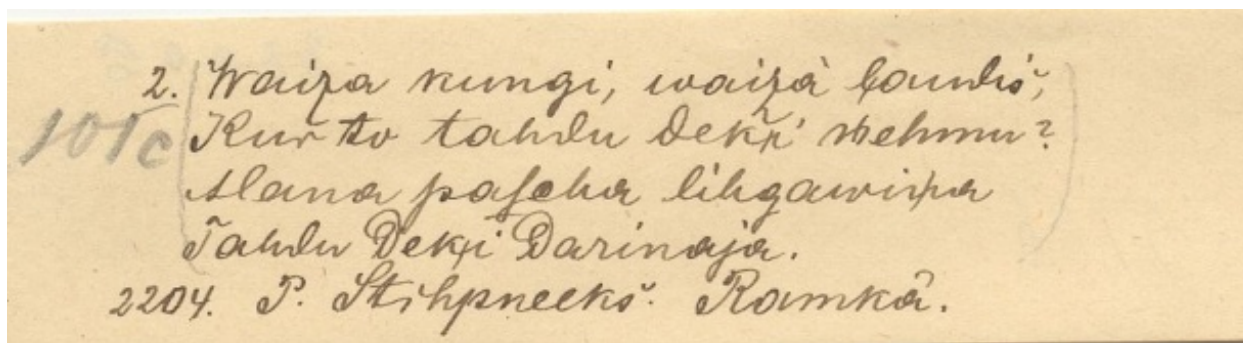 2. Waiza kungi, waizà ļaudis,
101c Kur to tahdu Deķķi ņehmu?
Mana pascha lihgawiņa
Tahdu Deķķi Darinaja.
2204. P. Stihpneeks. Ramkâ.